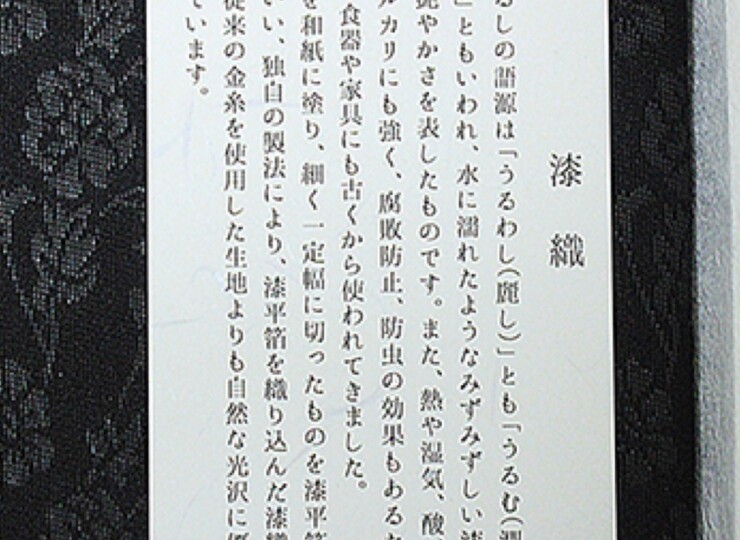 漆織
るしの語源は「うるわし(麗し)」とも「うるむ(潤
」ともいわれ、水に濡れたようなみずみずしい漆
艶やかさを表したものです。また、熱や湿気、酸、
ルカリにも強く、腐敗防止、防虫の効果もあるた
食器や家具にも古くから使われてきました。
を和紙に塗り、細く一定幅に切ったものを漆平箔
いい、独自の製法により、漆平箔を織り込んだ漆織
従来の金糸を使用した生地よりも自然な光沢に優
ています。